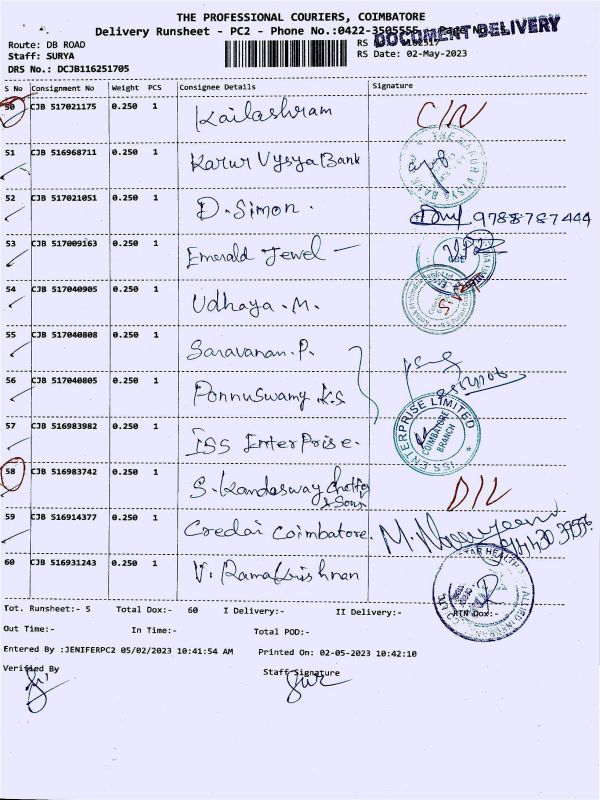 THE PROFESSIONAL COURIERS, COIMBATORE
Delivery Runsheet - PC2 - Phone No.:0422-3505555
DOCUMENT DELIVERY
Route: DB ROAD
Staff: SURYA RS Date: 02-May-2023
DRS No.: DCJB116251705
S No Consignment No Weight PCS Consignee Details Signature
50 CJB 517021175 0.250 1 Kailashram
51 CJB 516968711 0.250 1 Karur Vysya Bank
52 CJB 517021051 0.250 1 D. Simon. 9788787444
53 CJB 517009163 0.250 1 Emerald Jewel —
54 CJB 517040905 0.250 1 Udhaya. M.
55 CJB 517040808 0.250 1 Saravanan. P.
56 CJB 517040805 0.250 1 Ponnuswamy K.S
57 CJB 516983982 0.250 1 ISS Enterprise. ISS ENTERPRISE LIMITED COIMBATORE BRANCH
58 CJB 516983742 0.250 1 S. Kandasway Chetty & Sons
59 CJB 516914377 0.250 1 Credai Coimbatore.
60 CJB 516931243 0.250 1 V. Ramakrishnan
Tot. Runsheet:- 5 Total Dox:- 60 I Delivery:- II Delivery:- RTN Dox:-
Out Time:- In Time:- Total POD:-
Entered By :JENIFERPC2 05/02/2023 10:41:54 AM Printed On: 02-05-2023 10:42:10
Verified By Staff Signature